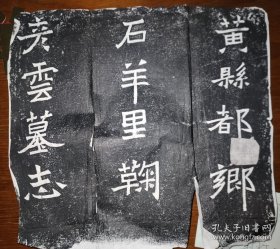 黃縣都鄉
石羊里鞠
彦雲墓志
孔夫子旧书网